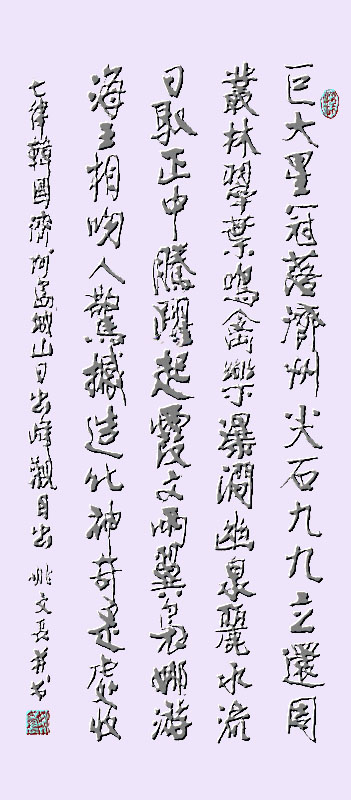 巨大星冠落濟州尖石九九立還周
叢林翠葉鳴禽樂深澗幽泉麗水流
日馭正中騰躍起霞文兩翼裊娜游
海王相吻人驚撼造化神奇是處收
七律韓國濟州島城山日出峰觀日出 姚文長并書